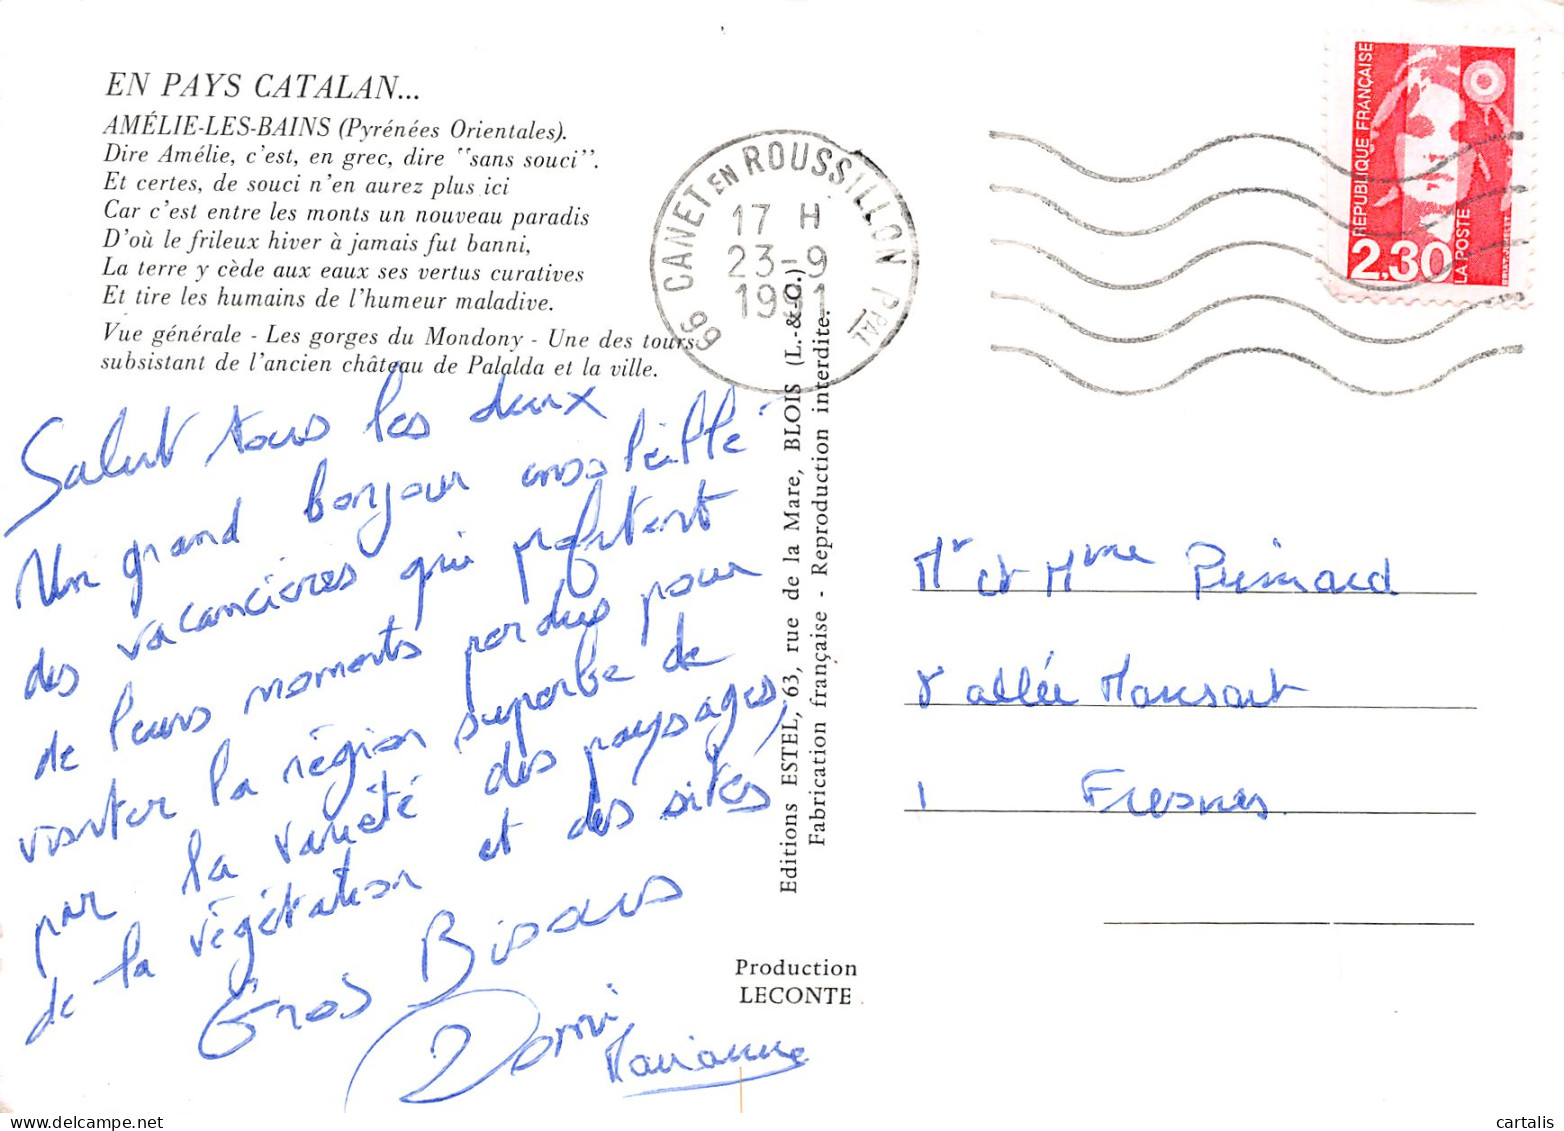 EN PAYS CATALAN...
AMÉLIE-LES-BAINS (Pyrénées Orientales).
Dire Amélie, c'est, en grec, dire "sans souci".
Et certes, de souci n'en aurez plus ici
Car c'est entre les monts un nouveau paradis
D'où le frileux hiver à jamais fut banni,
La terre y cède aux eaux ses vertus curatives
Et tire les humains de l'humeur maladive.
Vue générale - Les gorges du Mondony - Une des tours
subsistant de l'ancien château de Palalda et la ville.
Salut tous les deux
Un grand bonjour ensoleillé
des vacancières qui profitent
de leurs moments perdus pour
visiter la région superbe de
par la variété des paysages,
de la végétation et des sites
Gros Bisous
Domi
Marianne
66 CANET EN ROUSSILLON PPAL
17 H
23-9
1991
Editions ESTEL, 63, rue de la Mare, BLOIS (L.-&-C.)
Fabrication française - Reproduction interdite.
Production
LECONTE
REPUBLIQUE FRANÇAISE
2.30
LA POSTE
Mr et Mme
8 allée Mansart
Fresnes
cartalis
delcampe.net